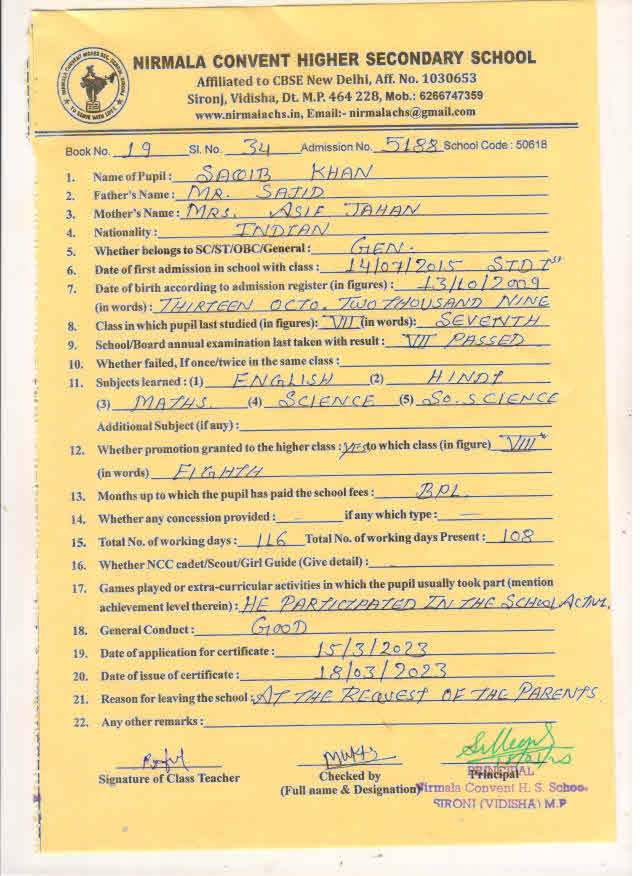 NIRMALA CONVENT HIGHER SECONDARY SCHOOL
Affiliated to CBSE New Delhi, Aff. No. 1030653
Sironj, Vidisha, Dt. M.P. 464 228, Mob.: 6266747359
www.nirmalachs.in, Email:- nirmalachs@gmail.com
Book No. 19 Sl. No. 34 Admission No. 5188 School Code : 50618
1. Name of Pupil : SAQIB KHAN
2. Father's Name : MR. SAJID
3. Mother's Name : MRS. ASIF JAHAN
4. Nationality : INDIAN
5. Whether belongs to SC/ST/OBC/General : GEN.
6. Date of first admission in school with class : 14/07/2015 STD Ist
7. Date of birth according to admission register (in figures) : 13/10/2009
(in words) : THIRTEEN OCTO. TWO THOUSAND NINE
8. Class in which pupil last studied (in figures): VII (in words): SEVENTH
9. School/Board annual examination last taken with result : VII PASSED
10. Whether failed, If once/twice in the same class :
11. Subjects learned : (1) ENGLISH (2) HINDI
(3) MATHS. (4) SCIENCE (5) SO. SCIENCE
Additional Subject (if any) :
12. Whether promotion granted to the higher class : YES to which class (in figure) VIII
(in words) EIGHTH
13. Months up to which the pupil has paid the school fees : BPL.
14. Whether any concession provided : — if any which type : —
15. Total No. of working days : 116 Total No. of working days Present : 108
16. Whether NCC cadet/Scout/Girl Guide (Give detail) :
17. Games played or extra-curricular activities in which the pupil usually took part (mention
achievement level therein) : HE PARTICIPATED IN THE SCHOOL ACTIVI.
18. General Conduct : GOOD
19. Date of application for certificate : 15/3/2023
20. Date of issue of certificate : 18/03/2023
21. Reason for leaving the school : AT THE REQUEST OF THE PARENTS.
22. Any other remarks :
Signature of Class Teacher
Checked by
(Full name & Designation)
Principal
PRINCIPAL
Nirmala Convent H. S. School
SIRONJ (VIDISHA) M.P